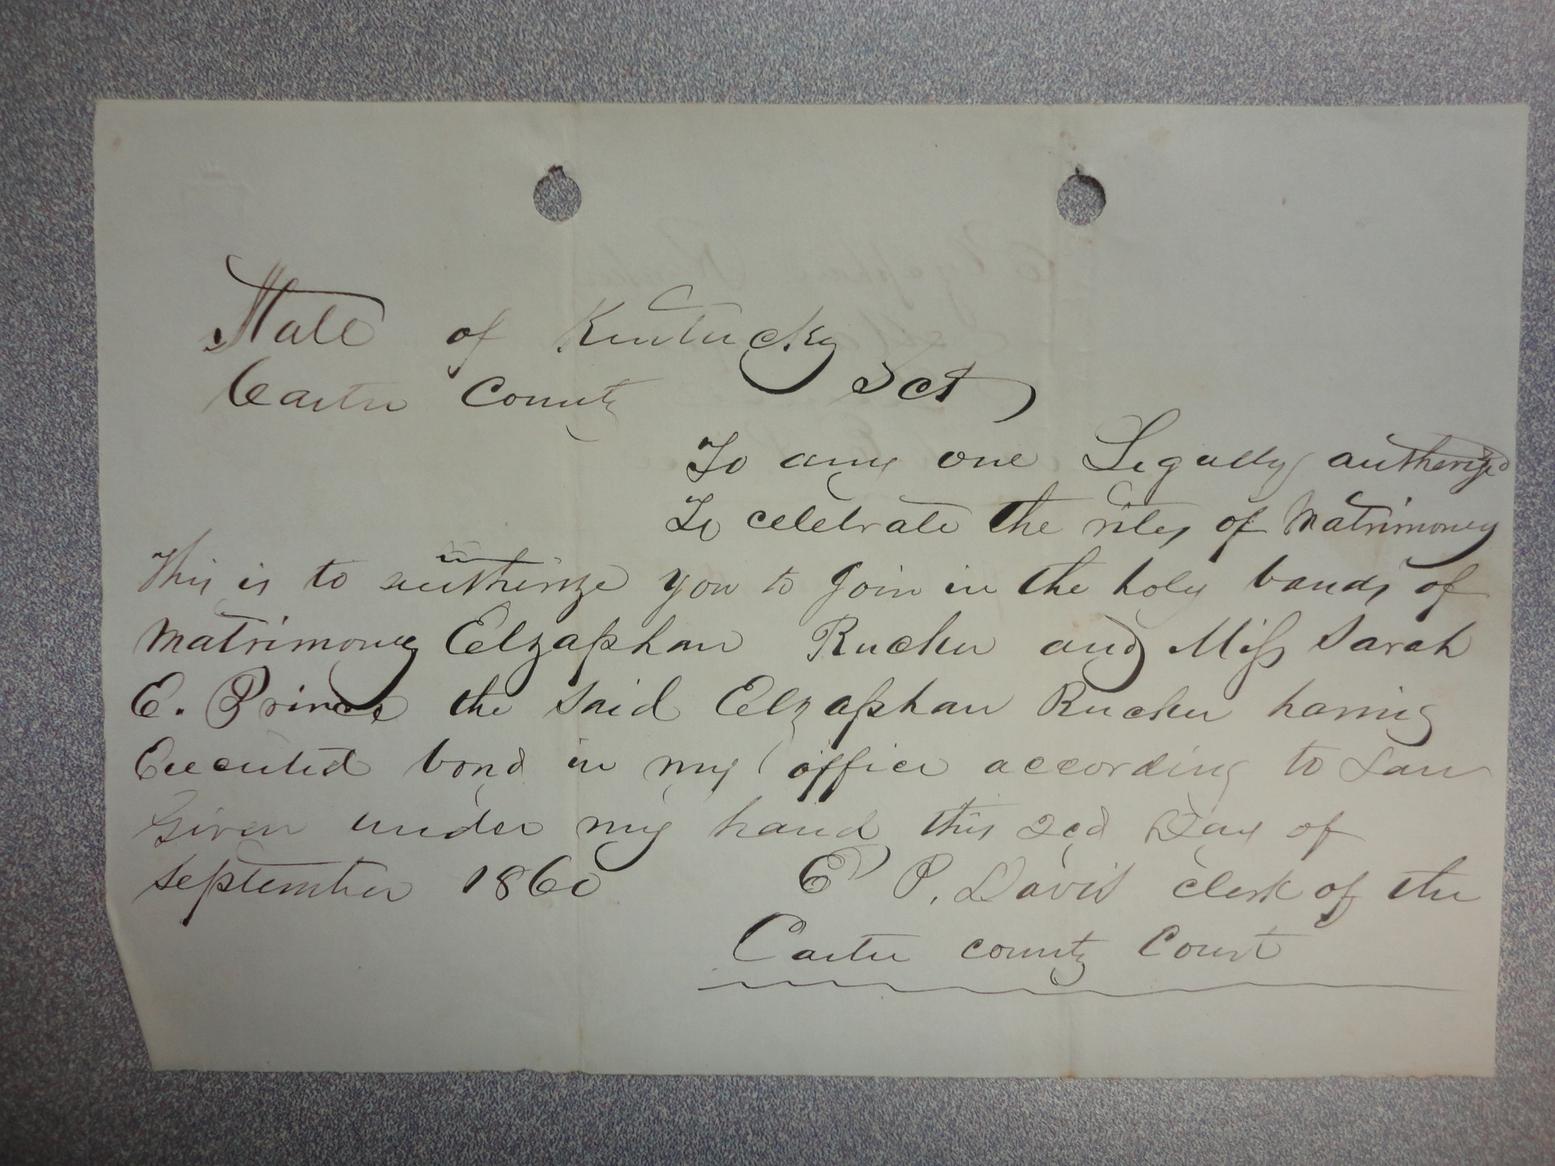 State of Kentucky
Carter County Sct
To any one Legally authorized
To celebrate the rites of Matrimoney
This is to authorize you to Join in the holy bands of
Matrimoney Elzaphan Rucker and Miss Sarah
E. Prince the said Elzaphan Rucker having
Executed bond in my office according to Law
Given under my hand this 2cd Day of
September 1860 E P. Davis clerk of the
Carter county Court